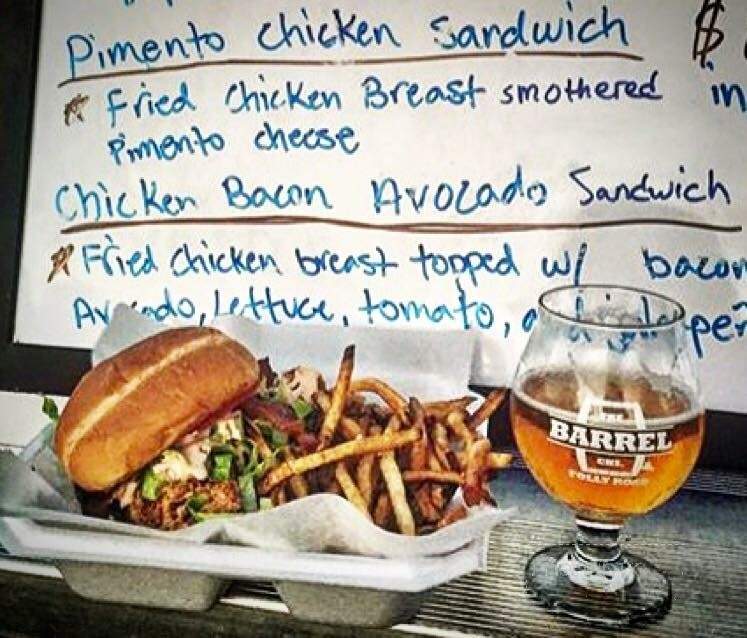 Pimento chicken Sandwich $
Fried Chicken Breast smothered in
Pimento cheese
Chicken Bacon Avocado Sandwich
Fried Chicken breast topped w/ bacon
Avocado, Lettuce, tomato,
THE
BARREL
CHS.
FOLLY ROAD